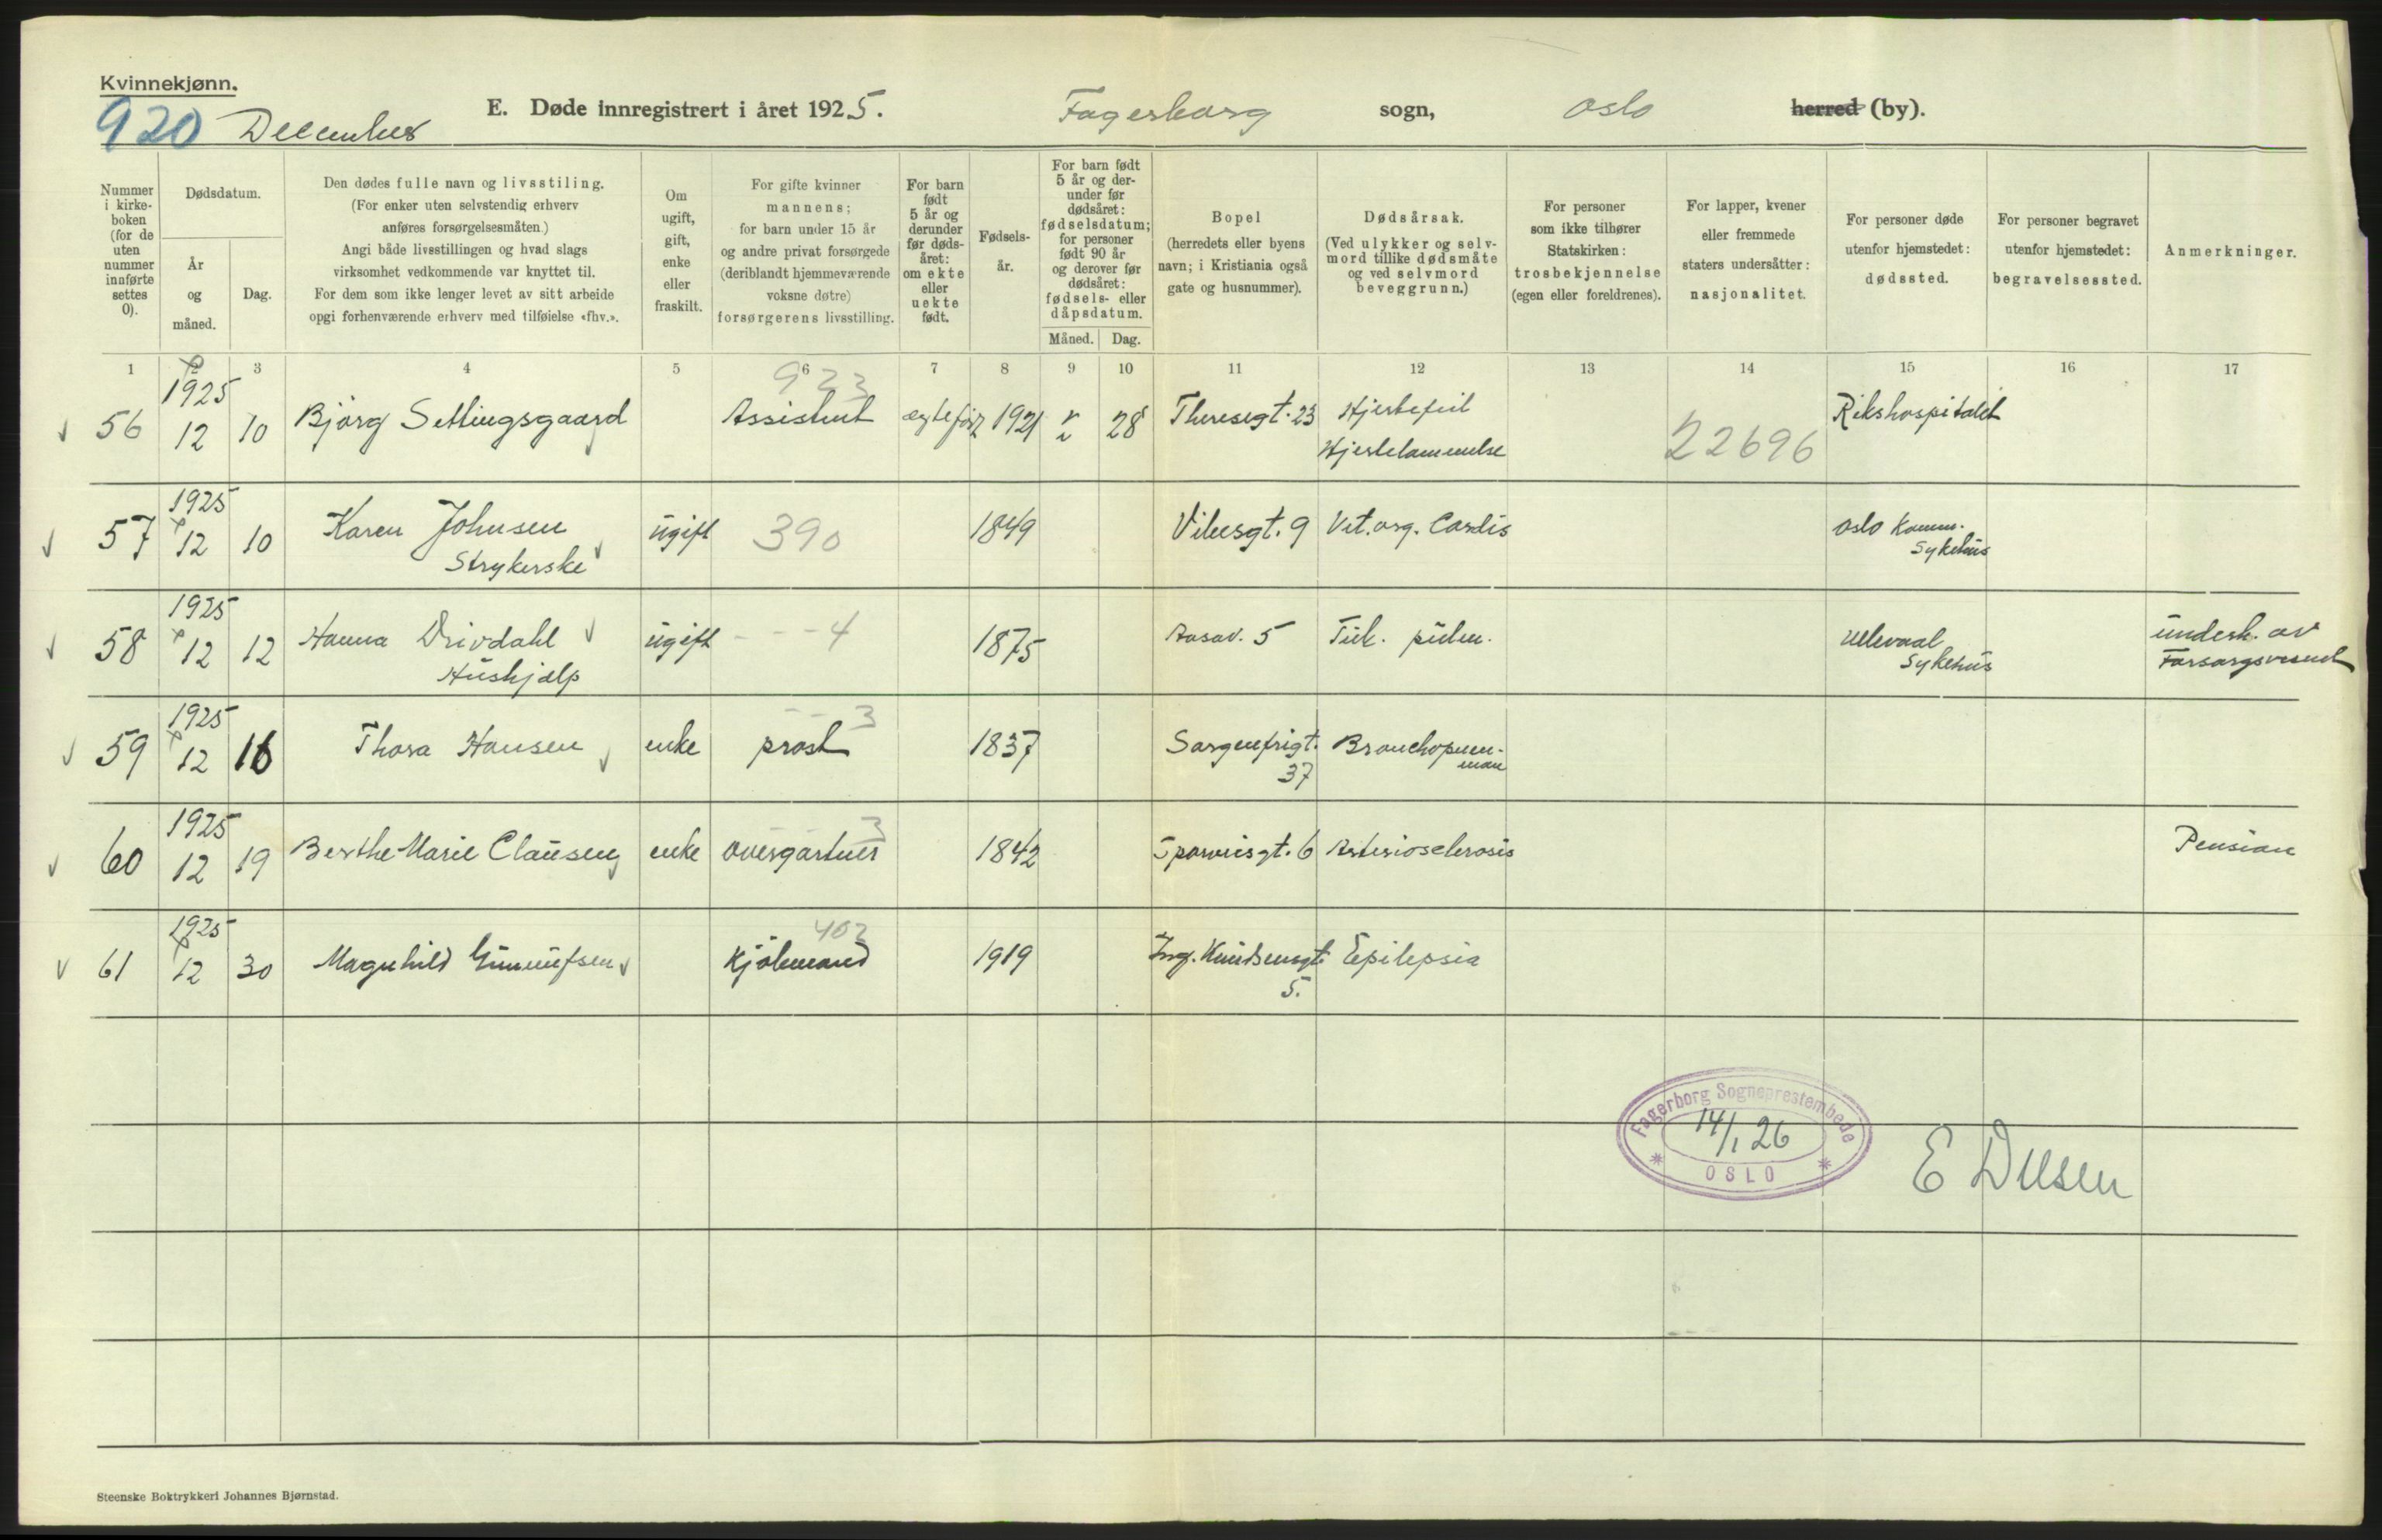 Kvinnekjønn.
920 December
E. Døde innregistrert i året 1925. Fagerborg sogn, Oslo herred (by).
Nummer i kirke-boken (for de uten nummer innførte settes 0).
Dødsdatum.
År og måned.
Dag.
Den dødes fulle navn og livsstiling.
(For enker uten selvstendig erhverv
anføres forsørgelsesmåten.)
Angi både livsstillingen og hvad slags
virksomhet vedkommende var knyttet til.
For dem som ikke lenger levet av sitt arbeide
opgi forhenværende erhverv med tilføielse «fhv.».
Om ugift, gift, enke eller fraskilt.
For gifte kvinner
mannens;
for barn under 15 år
og andre privat forsørgede
(deriblandt hjemmeværende
voksne døtre)
forsørgerens livsstilling.
For barn født 5 år og derunder før døds-året: om ekte eller uekte født.
Fødsels-år.
For barn født
5 år og der-
under før
dødsåret:
fødselsdatum;
for personer
født 90 år
og derover før
dødsåret:
fødsels- eller
dåpsdatum.
Måned. Dag.
Bopel
(herredets eller byens
navn; i Kristiania også
gate og husnummer).
Dødsårsak.
(Ved ulykker og selv-
mord tillike dødsmåte
og ved selvmord
beveggrunn.)
For personer
som ikke tilhører
Statskirken:
trosbekjennelse
(egen eller foreldrenes).
For lapper, kvener
eller fremmede
staters undersåtter:
nasjonalitet.
For personer døde
utenfor hjemstedet:
dødssted.
For personer begravet
utenfor hjemstedet:
begravelsessted.
Anmerkninger.
1 2 3 4 5 6 7 8 9 10 11 12 13 14 15 16 17
923
56 1925 12 10 Bjørg Settingsgaard Assistent 1921 28 Theresegt. 23 Hjertefeil Rikshospitalet
Hjertelammelse 22696
57 1925 12 10 Karen Johnsen ugift 390 1849 Vibesgt. 9 Vit. org. Cordis Oslo Komm.
Strykerske Sykehus
58 1925 12 12 Hanna Drivdahl ugift - - - 4 1875 Aasav. 5 Tub. pulm. Ullevaal underh. av
Hushjælp Sykehus Forsorgsvesenet
59 1925 12 16 Thora Hansen enke - - 3 prost 1837 Sorgenfrigt. Bronchopneu-
37 moni
60 1925 12 19 Berthe Marie Clausen enke - - 3 overgartner 1842 Sporveisgt. 6 Arteriosclerosis Pension
61 1925 12 30 Magnhild Gunnufsen 402 Kjølemand 1919 Ing. Knudsensgt. Epilepsia
5.
Fagerborg Sogneprestembede
14/1 26
OSLO
Steenske Boktrykkeri Johannes Bjørnstad.